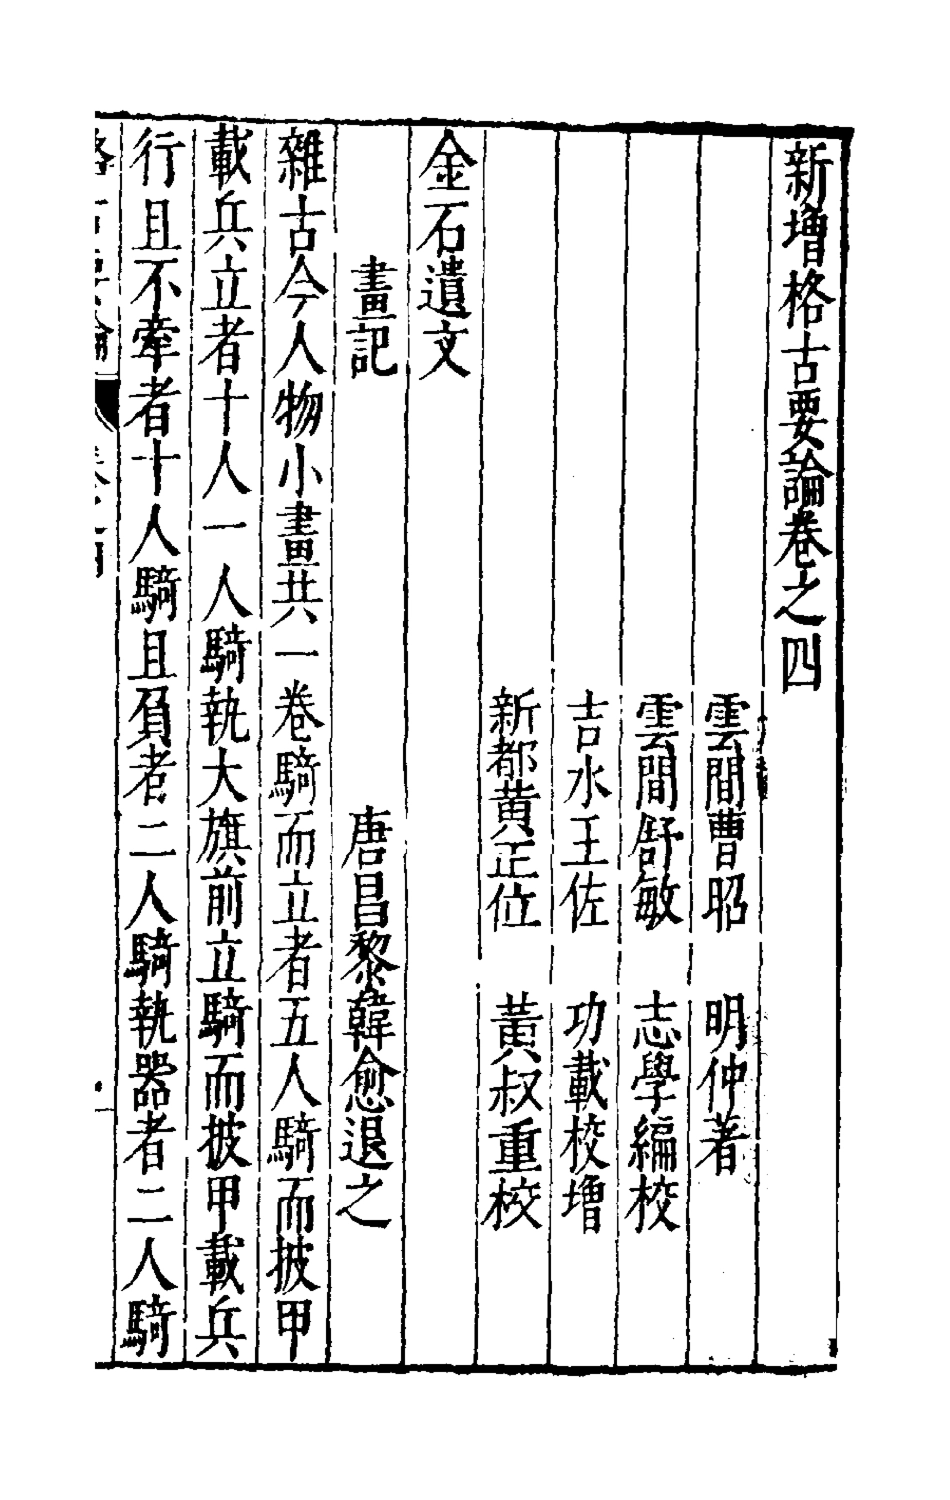 新增格古要論卷之四
雲間曹昭 明仲著
雲間舒敏 志學編校
吉水王佐 功載校增
新都黃正位 黃叔重校
金石遺文
畫記
唐昌黎韓愈退之
雜古今人物小畫共一卷騎而立者五人騎而披甲
載兵立者十人一人騎執大旗前立騎而披甲載兵
行且不牽者十人騎且負者二人騎執器者二人騎